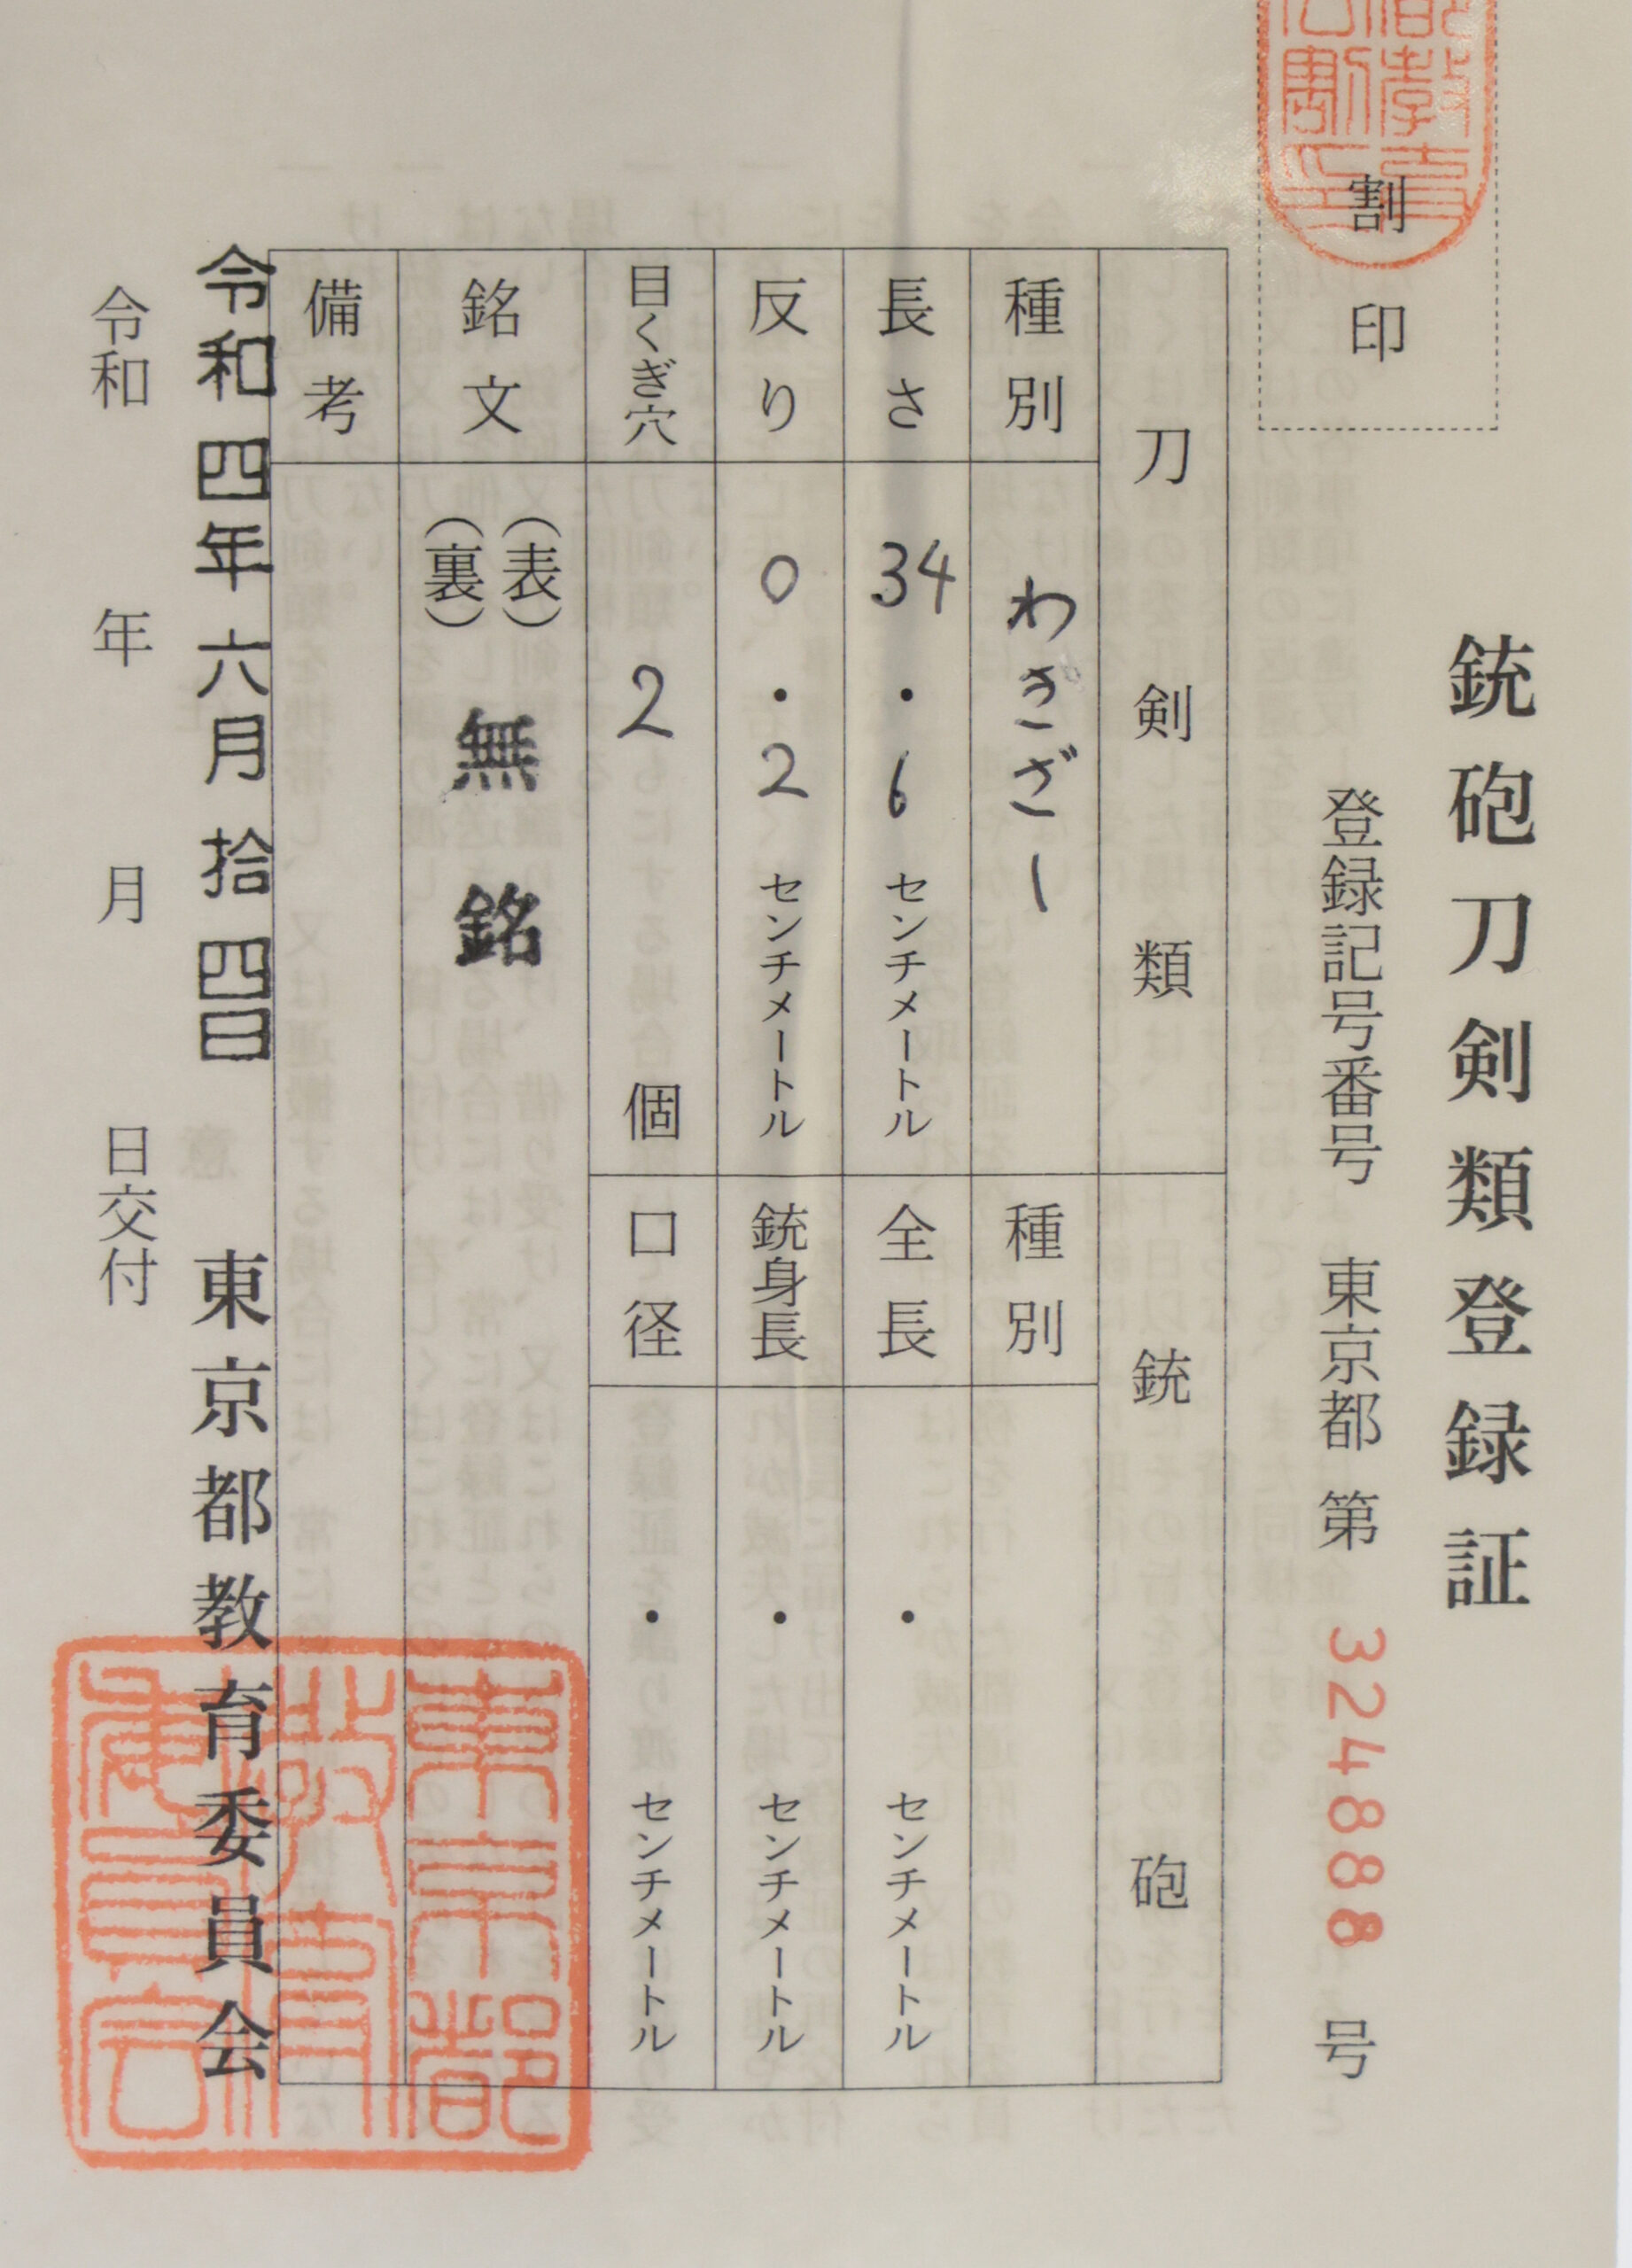 銃砲刀剣類登録証
割印
登録記号番号 東京都 第 324888 号
刀剣類
種別 わきざし
長さ 34.6 センチメートル
反り 0.2 センチメートル
目くぎ穴 2 個
銘文 (表) (裏) 無銘
備考
銃砲
種別
全長 ・ センチメートル
銃身長 ・ センチメートル
口径 ・ センチメートル
令和四年六月拾四日
東京都教育委員会
令和 年 月 日交付